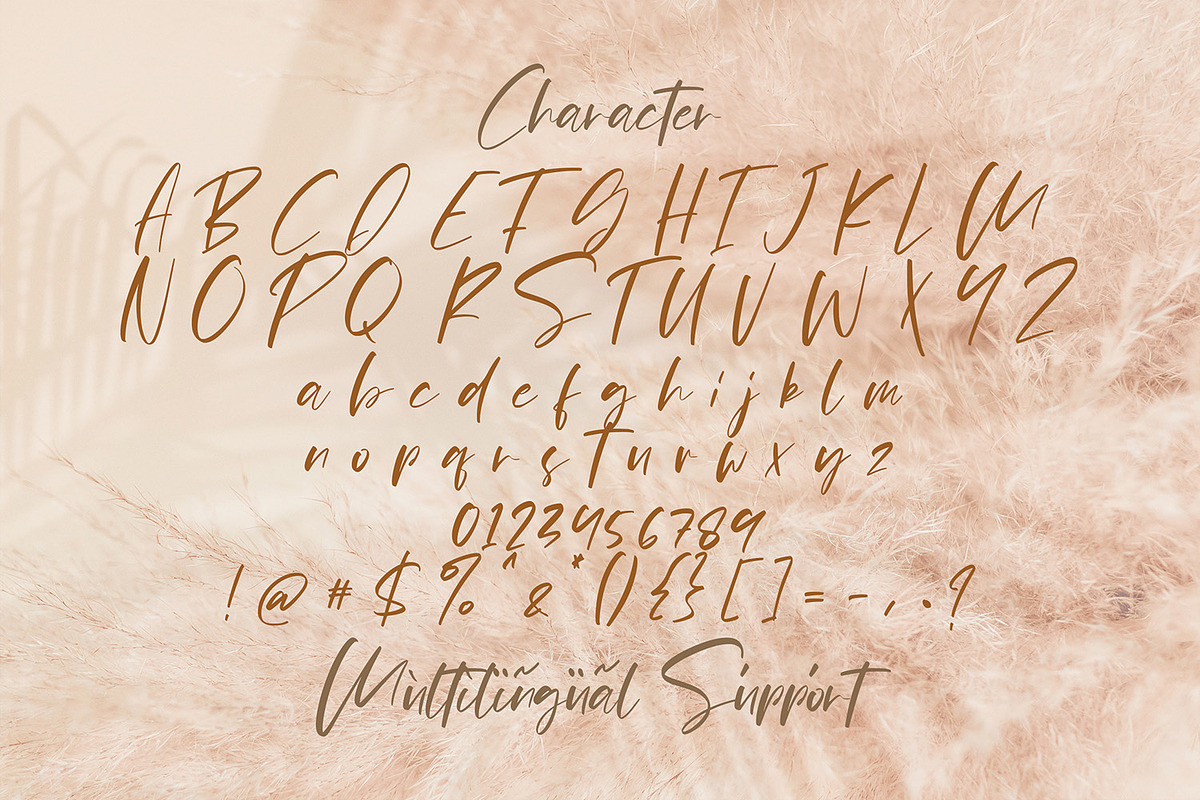 Character
A B C D E F G H I J K L M
N O P Q R S T U V W X Y Z
a b c d e f g h i j k l m
n o p q r s t u v w x y z
0123456789
! @ # $ % ^ & * ( ) { } [ ] = - , . ?
Mùltìlïñgüãl Súppórt